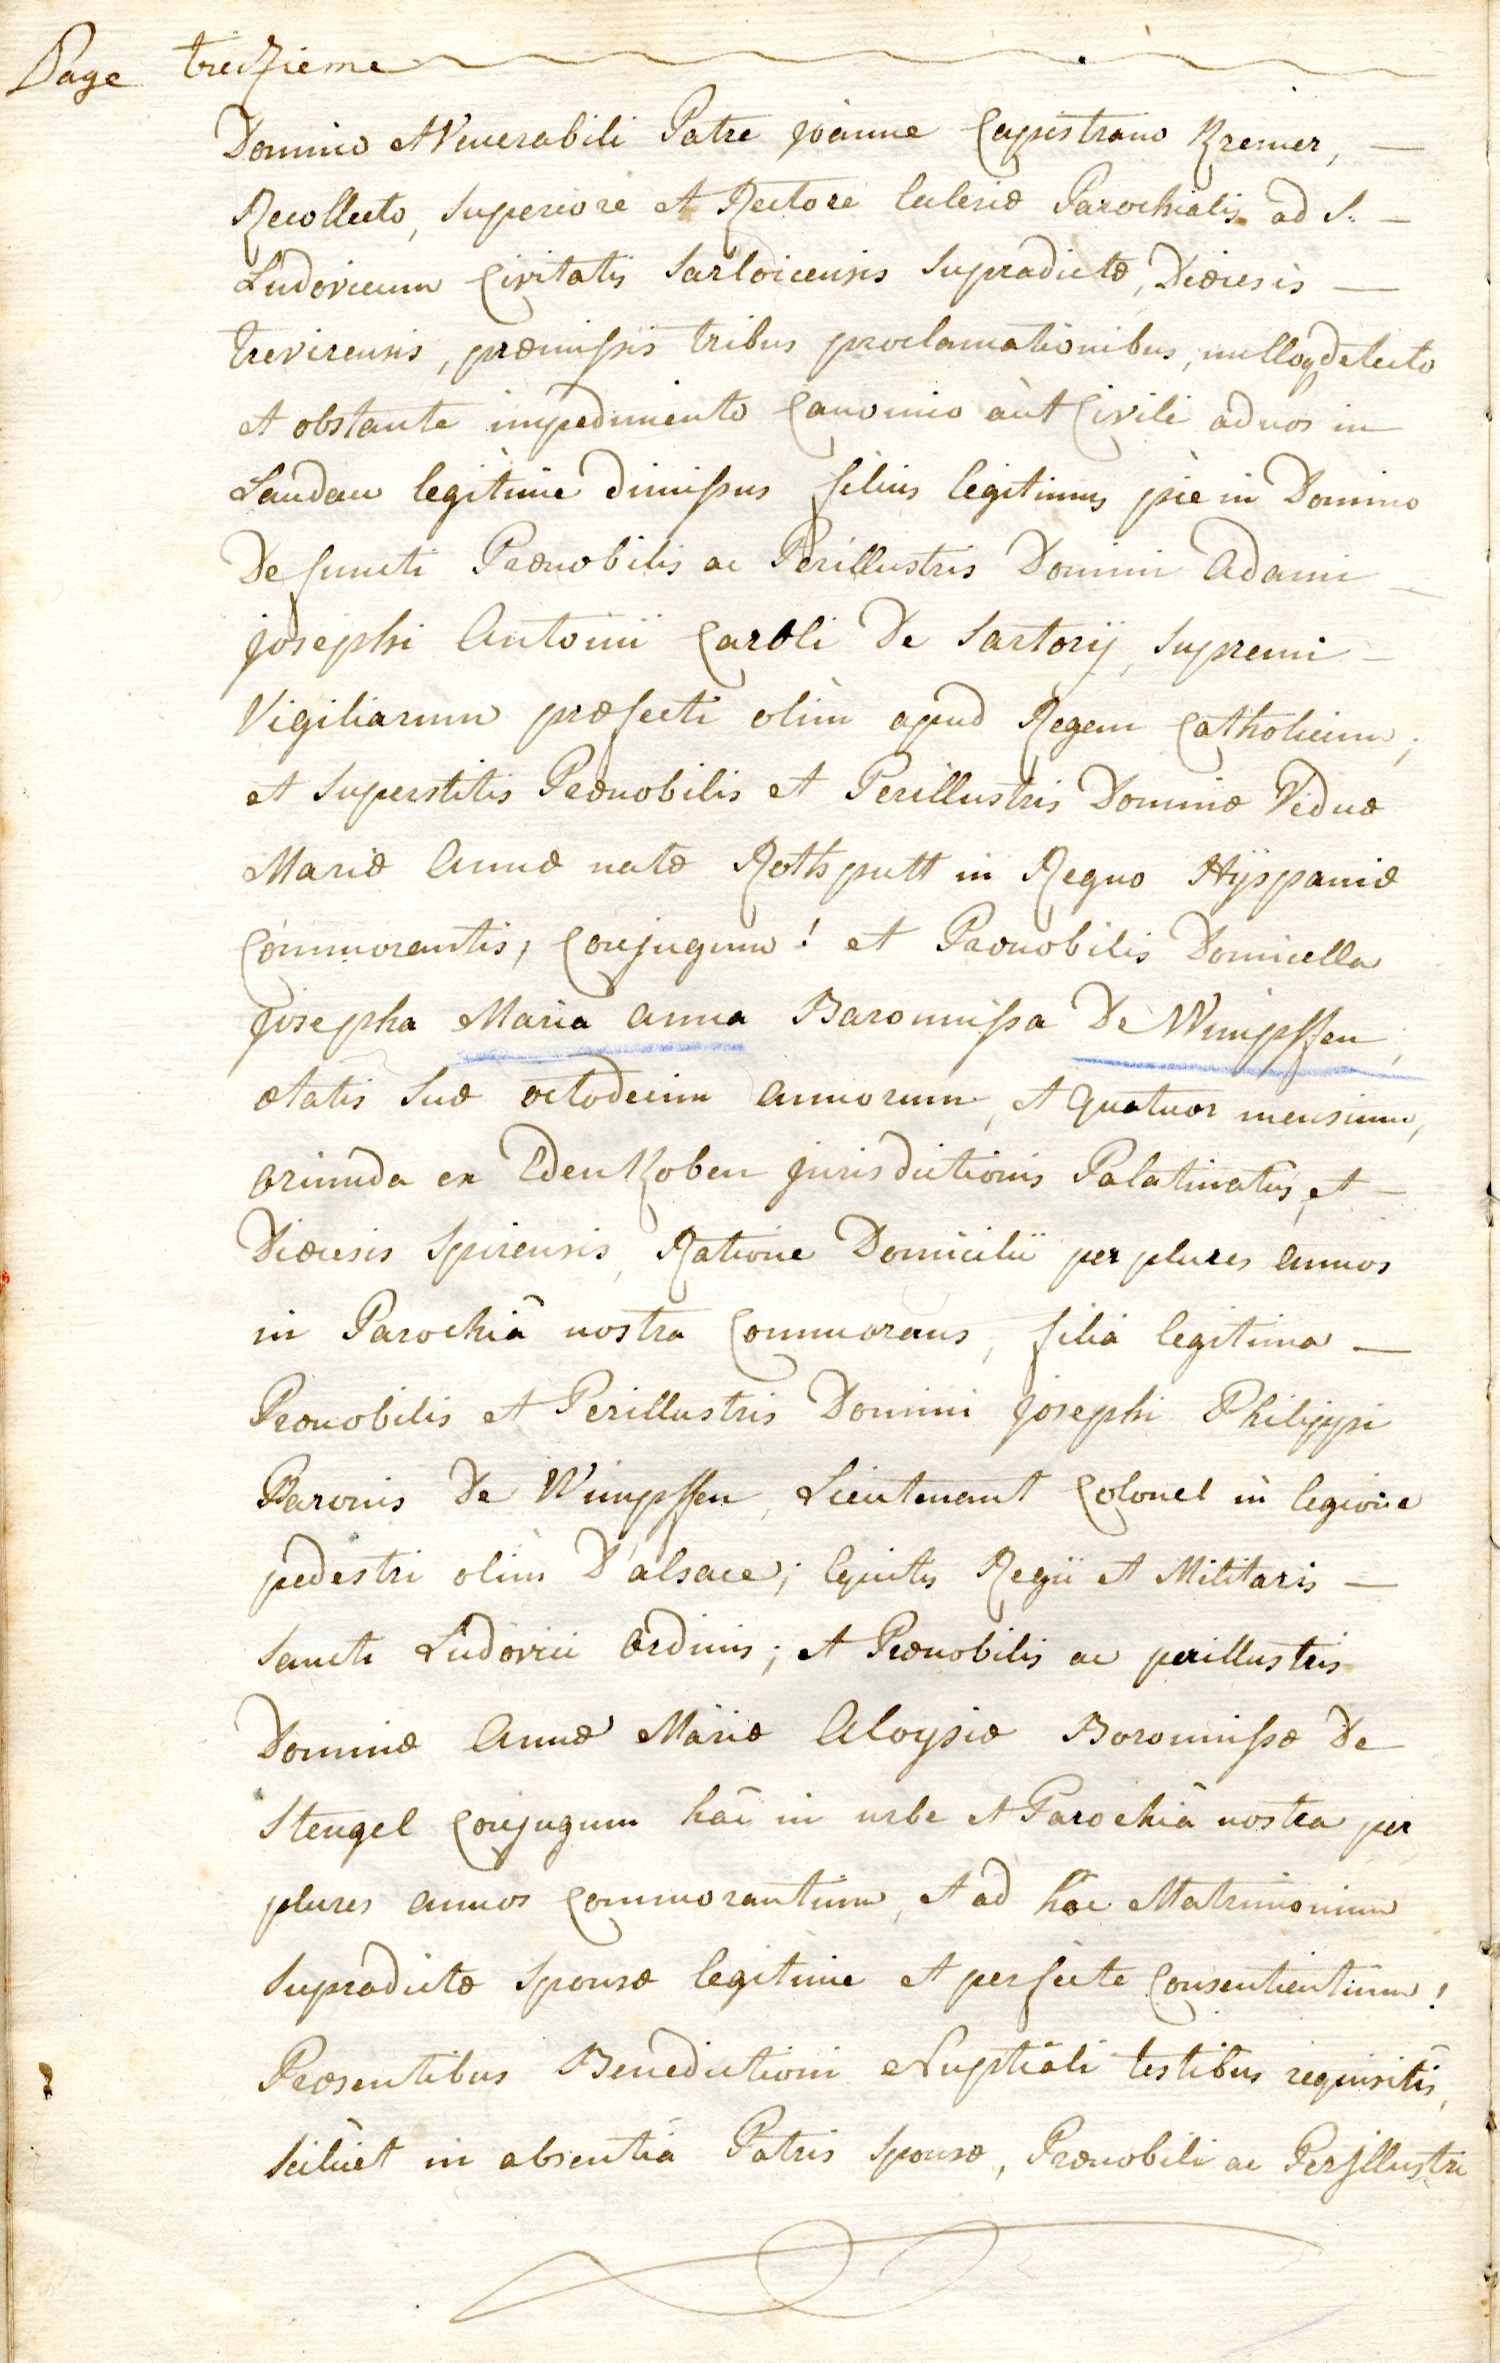 Page treizieme
Domino et Venerabili Patre joanne Capistrano Kremer, —
Recollecto, Superiore et Rectore Eclesiæ Parochialis ad S. —
Ludovicum Civitatis Sarloicensis Supradictæ, Diœcesis —
trevirensis, præmissis tribus proclamationibus, nulloq detecto
et obstante impedimento Canonico aut Civili ad nos in
Landau legitime dimissus filius legitimus piè in Domino
Defuncti Prænobilis ac Perillustris Domini Adami —
josephi Antonii Caroli De Sartorÿ, Supremi —
Vigiliarum præfecti olim apud Regem Catholicum;
et Superstitis Prænobilis et Perillustris Dominæ Viduæ
Mariæ Annæ natæ Rothputt in Regno Hÿspaniæ
Commorantis, Conjugum! et Prænobilis Domicella
josepha Maria Anna Baronnissa De Wimpffen,
ætatis Suæ octodecim annorum, et quatuor mensium,
oriunda ex EdenKoben jurisdictionis Palatinatus, et —
Diœcesis Spirensis, Ratione Domicilii per plures annos
in Parochiâ nostra Commorans, filia legitima —
Prænobilis et Perillustris Domini josephi Philippi
Baronis De Wimpffen, Lieutenant Colonel in legione
pedestri olim D'alsace; Equitis Regii et Militaris —
Sancti Ludovici Ordinis; et Prænobilis ac perillustris
Dominæ Annæ Mariæ Aloysiæ Boronnissæ De
Stengel Conjugum hâc in urbe et Parochiâ nostra per
plures annos Commorantium, et ad hoc Matrimonium
Supradictæ Sponsæ legitime et perfecte Consentientium!
Præsentibus Benedictioni Nuptiali testibus requisitis,
Scilicet in absentiâ Patris Sponsæ, Prænobili ac Perjllustri